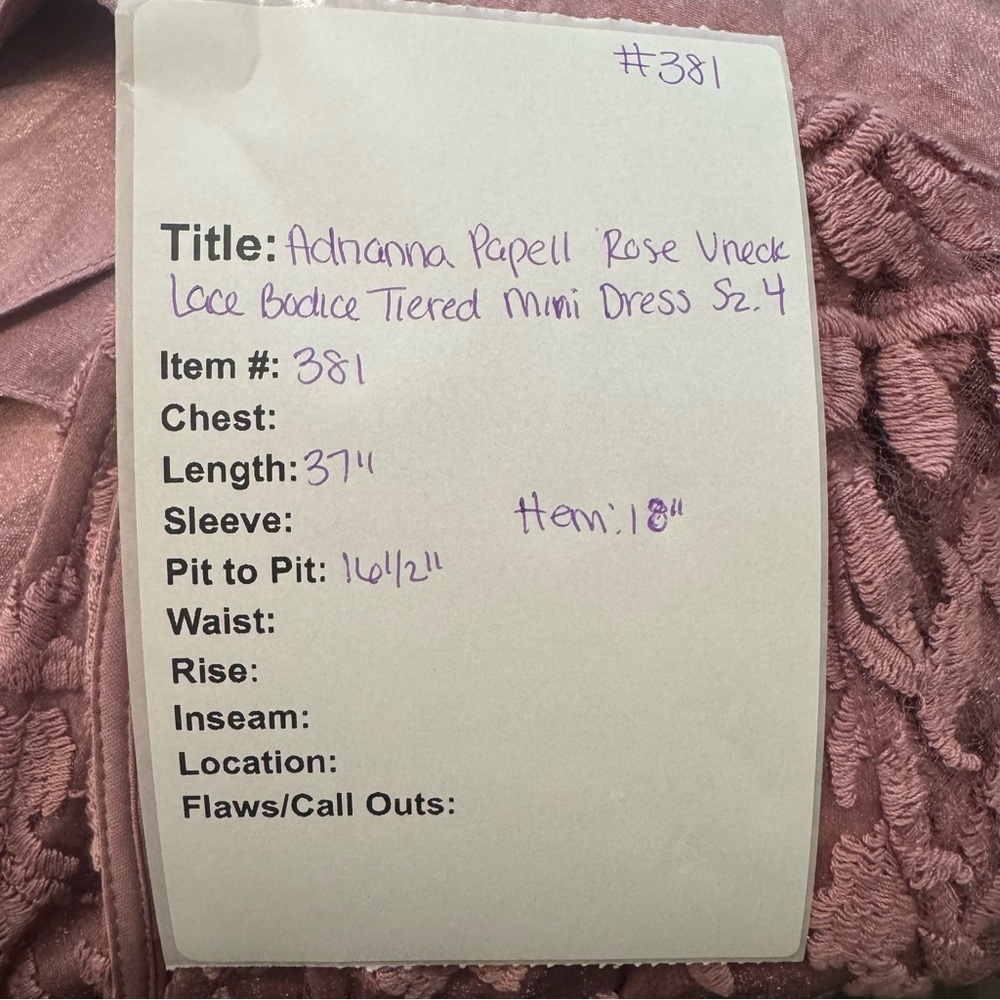 #381
Title: Adrianna Papell Rose Vneck
Lace Bodice Tiered Mini Dress Sz. 4
Item #: 381
Chest:
Length: 37"
Sleeve: Hem: 18"
Pit to Pit: 16 1/2"
Waist:
Rise:
Inseam:
Location:
Flaws/Call Outs: